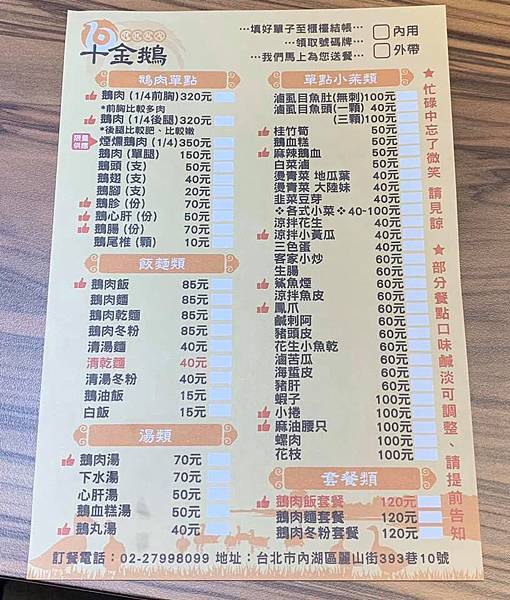 十金鵝
…填好單子至櫃檯結帳…
…領取號碼牌…
…我們馬上為您送餐…
內用
外帶
鵝肉單點
鵝肉 (1/4前胸) 320元
*前胸比較多肉
鵝肉 (1/4後腿) 320元
*後腿比較肥、比較嫩
限量供應
煙燻鵝肉 (1/4) 350元
鵝肉 (單腿) 150元
鵝頭 (支) 50元
鵝翅 (支) 40元
鵝腳 (支) 20元
鵝胗 (份) 70元
鵝心肝 (份) 50元
鵝腸 (份) 70元
鵝尾椎 (顆) 10元
飯麵類
鵝肉飯 85元
鵝肉麵 85元
鵝肉乾麵 85元
鵝肉冬粉 85元
清湯麵 40元
清乾麵 40元
清湯冬粉 40元
鵝油飯 15元
白飯 15元
湯類
鵝肉湯 70元
下水湯 70元
心肝湯 50元
鵝血糕湯 50元
鵝丸湯 40元
單點小菜類
滷虱目魚肚(無刺) 100元
滷虱目魚頭(一顆) 40元
(三顆) 100元
桂竹筍 50元
鵝血糕 50元
麻辣鵝血 50元
白菜滷 50元
燙青菜 地瓜葉 40元
燙青菜 大陸妹 40元
韭菜豆芽 40元
❖各式小菜❖ 40-100元
涼拌花生 40元
涼拌小黃瓜 40元
三色蛋 40元
客家小炒 60元
生腸 60元
鯊魚煙 60元
涼拌魚皮 60元
鳳爪 60元
鹹刺阿 60元
豬頭皮 60元
花生小魚乾 60元
滷苦瓜 60元
海蜇皮 60元
豬肝 60元
蝦子 100元
小捲 100元
麻油腰只 100元
螺肉 100元
花枝 100元
套餐類
鵝肉飯套餐 120元
鵝肉麵套餐 120元
鵝肉冬粉套餐 120元
★忙碌中忘了微笑 請見諒
★部分餐點口味鹹淡可調整、請提前告知
訂餐電話：02-27998099 地址：台北市內湖區麗山街393巷10號